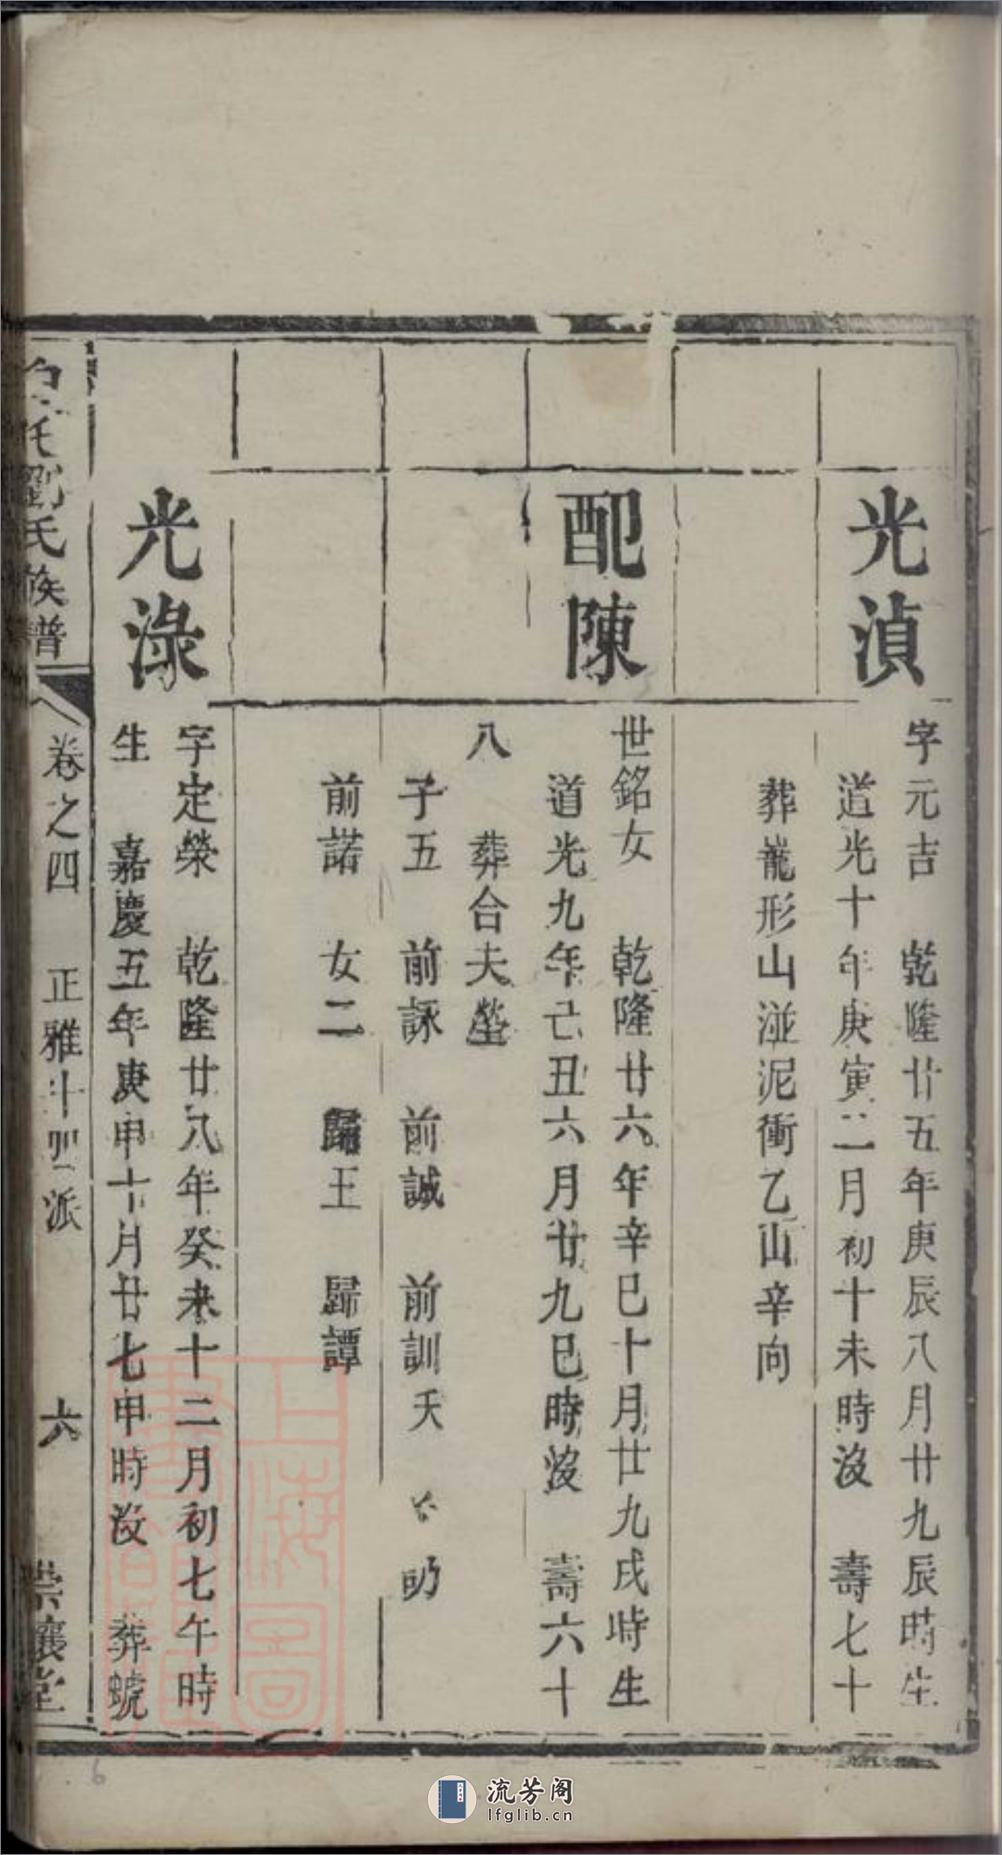 光湞
字元吉 乾隆廿五年庚辰八月廿九辰時生
道光十年庚寅二月初十未時沒 壽七十
葬巃形山湴泥衝乙山辛向
配陳
世銘女 乾隆廿六年辛巳十月廿九戌時生
道光九年己丑六月廿九巳時沒 壽六十
八 葬合夫塋
子五 前詠 前誠 前訓夭 前
前諾 女二 歸王 歸譚
光淥
字定榮 乾隆廿八年癸未十二月初七午時
生 嘉慶五年庚申十月廿七申時沒 葬螔
劉氏族譜
卷之四 正雅斗四派 六
堂
上海圖書館藏
6
流芳阁
lfglib.cn